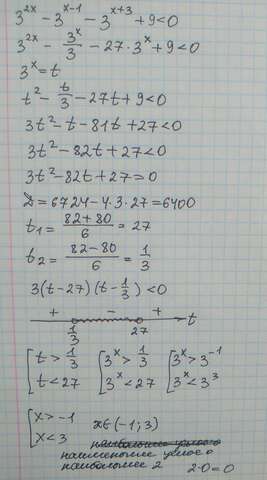 3^{2x} - 3^{x-1} - 3^{x+3} + 9 < 0
3^{2x} - 3^x/3 - 27·3^x + 9 < 0
3^x = t
t^2 - t/3 - 27t + 9 < 0
3t^2 - t - 81t + 27 < 0
3t^2 - 82t + 27 < 0
3t^2 - 82t + 27 = 0
D = 6724 - 4·3·27 = 6400
t_1 = (82+80)/6 = 27
t_2 = (82-80)/6 = 1/3
3(t-27)(t-1/3) < 0
+ - +
1/3 27 t
[t > 1/3 [3^x > 1/3 [3^x > 3^{-1}
t < 27 3^x < 27 3^x < 3^3
[x > -1 x∈(-1; 3)
x < 3
наименошее целое 0
наиболшее 2 2·0=0